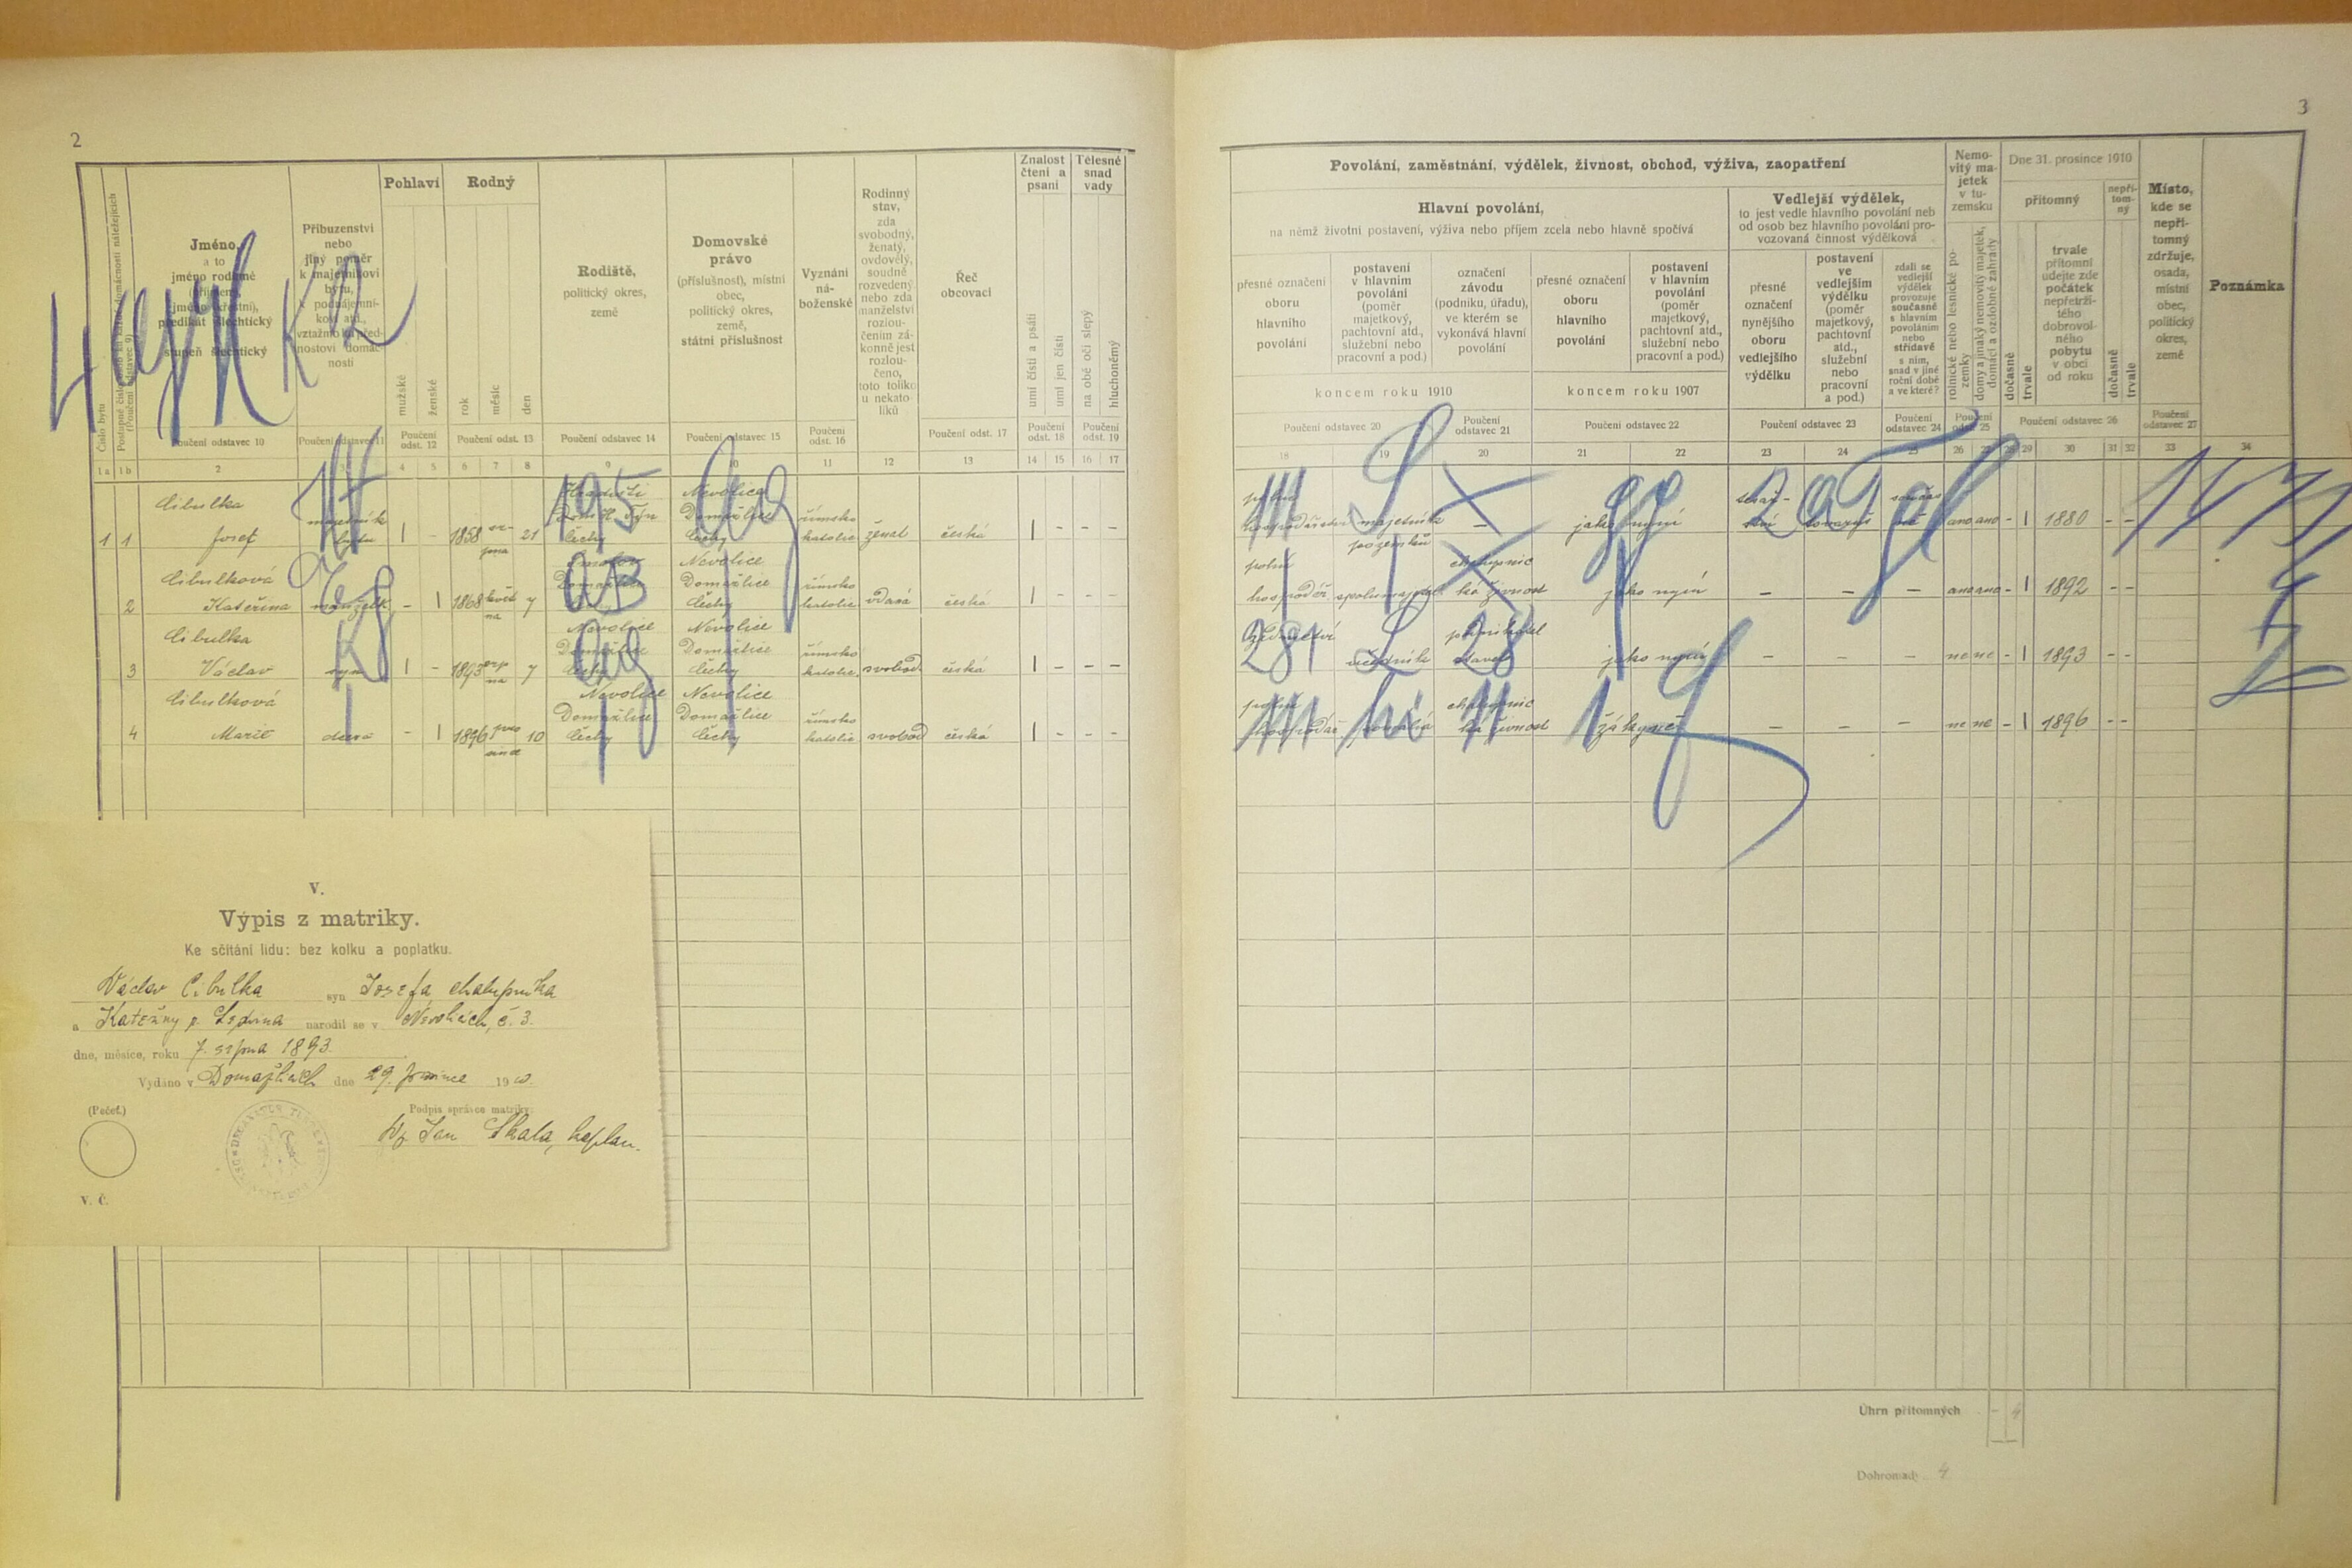 2
3
Číslo bytu
Postupné číslo osob ku každé domácnosti náležejících
(Poučení odstavec 9)
Jméno,
a to
jméno rodinné
(příjmení),
jméno (křestní),
predikát šlechtický
a
stupeň šlechtický
Příbuzenství
nebo
jiný poměr
k majetníkovi
bytu,
k podnájemní-
kovi atd.,
vztažmo ku před-
nostovi domác-
nosti
Pohlaví
mužské
ženské
Rodný
rok
měsíc
den
Rodiště,
politický okres,
země
Domovské
právo
(příslušnost), místní
obec,
politický okres,
země,
státní příslušnost
Vyznání
ná-
boženské
Rodinný
stav,
zda
svobodný,
ženatý,
ovdovělý,
soudně
rozvedený
nebo zda
manželství
rozlou-
čením zá-
konně jest
rozlou-
čeno,
toto toliko
u nekato-
líků
Řeč
obcovací
Znalost
čtení a
psaní
umí čísti a psáti
umí jen čísti
Tělesné
snad
vady
na obě oči slepý
hluchoněmý
Poučení odstavec 10
Poučení odstavec 11
Poučení odst. 12
Poučení odst. 13
Poučení odstavec 14
Poučení odstavec 15
Poučení odst. 16
Poučení odst. 17
Poučení odst. 18
Poučení odst. 19
1a 1b 2 4 5 6 7 8 9 10 11 12 13 14 15 16 17
4 K 2
Cibulka
1 1 Josef majetník bytu 1 - 1858 srpna 21 Čechy Nevolice Domažlice Čechy římsko katolic. ženat česká 1 - - -
Cibulková
2 Kateřina manželk. - 1 1868 květ na 7 Domažlice Čechy Nevolice Domažlice Čechy římsko katolic. vdaná česká 1 - - -
Cibulka
3 Václav syn 1 - 1893 srp na 7 Nevolice Domažlice Čechy Nevolice Domažlice Čechy římsko katolic. svobod. česká 1 - - -
Cibulková
4 Marie dcera - 1 1896 pro since 10 Nevolice Domažlice Čechy Nevolice Domažlice Čechy římsko katolic svobod česká 1 - - -
195
V.
Výpis z matriky.
Ke sčítání lidu: bez kolku a poplatku.
Václav Cibulka syn Josefa chalupníka
a Kateřiny narodil se v Nevolicích, č. 3.
dne, měsíce, roku 7. srpna 1893.
Vydáno v Domažlicích dne 29. prosince 1910.
(Pečeť.)
Podpis správce matriky:
Jan Skala, kaplan.
V. Č.
Povolání, zaměstnání, výdělek, živnost, obchod, výživa, zaopatření
Hlavní povolání,
na němž životní postavení, výživa nebo příjem zcela nebo hlavně spočívá
přesné označení
oboru
hlavního
povolání
postavení
v hlavním
povolání
(poměr
majetkový,
pachtovní atd.,
služební nebo
pracovní a pod.)
označení
závodu
(podniku, úřadu),
ve kterém se
vykonává hlavní
povolání
koncem roku 1910
přesné označení
oboru
hlavního
povolání
postavení
v hlavním
povolání
(poměr
majetkový,
pachtovní atd.,
služební nebo
pracovní a pod.)
koncem roku 1907
Vedlejší výdělek,
to jest vedle hlavního povolání neb
od osob bez hlavního povolání pro-
vozovaná činnost výdělková
přesné
označení
nynějšího
oboru
vedlejšího
výdělku
postavení
ve
vedlejším
výdělku
(poměr
majetkový,
pachtovní
atd.,
služební
nebo
pracovní
a pod.)
zdali se
vedlejší
výdělek
provozuje
současně
s hlavním
povoláním
nebo
střídavě
s ním,
snad v jiné
roční době
a ve které?
Nemo-
vitý ma-
jetek
v tu-
zemsku
rolnické nebo lesnické po-
zemky
domy a jinaký nemovitý majetek,
domácí a ozdobné zahrady
Dne 31. prosince 1910
přítomný
dočasně
trvale
trvale
přítomní
údejte zde
počátek
nepřetrži-
tého
dobrovol-
ného
pobytu
v obci
od roku
nepří-
tom-
ný
dočasně
trvale
Místo,
kde se
nepří-
tomný
zdržuje,
osada,
místní
obec,
politický
okres,
země
Poznámka
Poučení odstavec 20
Poučení odstavec 21
Poučení odstavec 22
Poučení odstavec 23
Poučení odstavec 24
Poučení odst. 25
Poučení odstavec 26
Poučení odstavec 27
18 19 20 21 22 23 24 25 26 27 28 29 30 31 32 33 34
polní hospodářství majetník pozemků - jako nyní ano ano - 1 1880 - -
polní hospodář. chalupnic ká živnost jako nyní - - - ano ano - 1 1892 - -
učedník jako nyní - - - ne ne - 1 1893 - -
polní hospodář. chalupnic ká živnost žákyně - - - ne ne - 1 1896 - -
281 28
Úhrn přítomných - 4
Dohromady 4